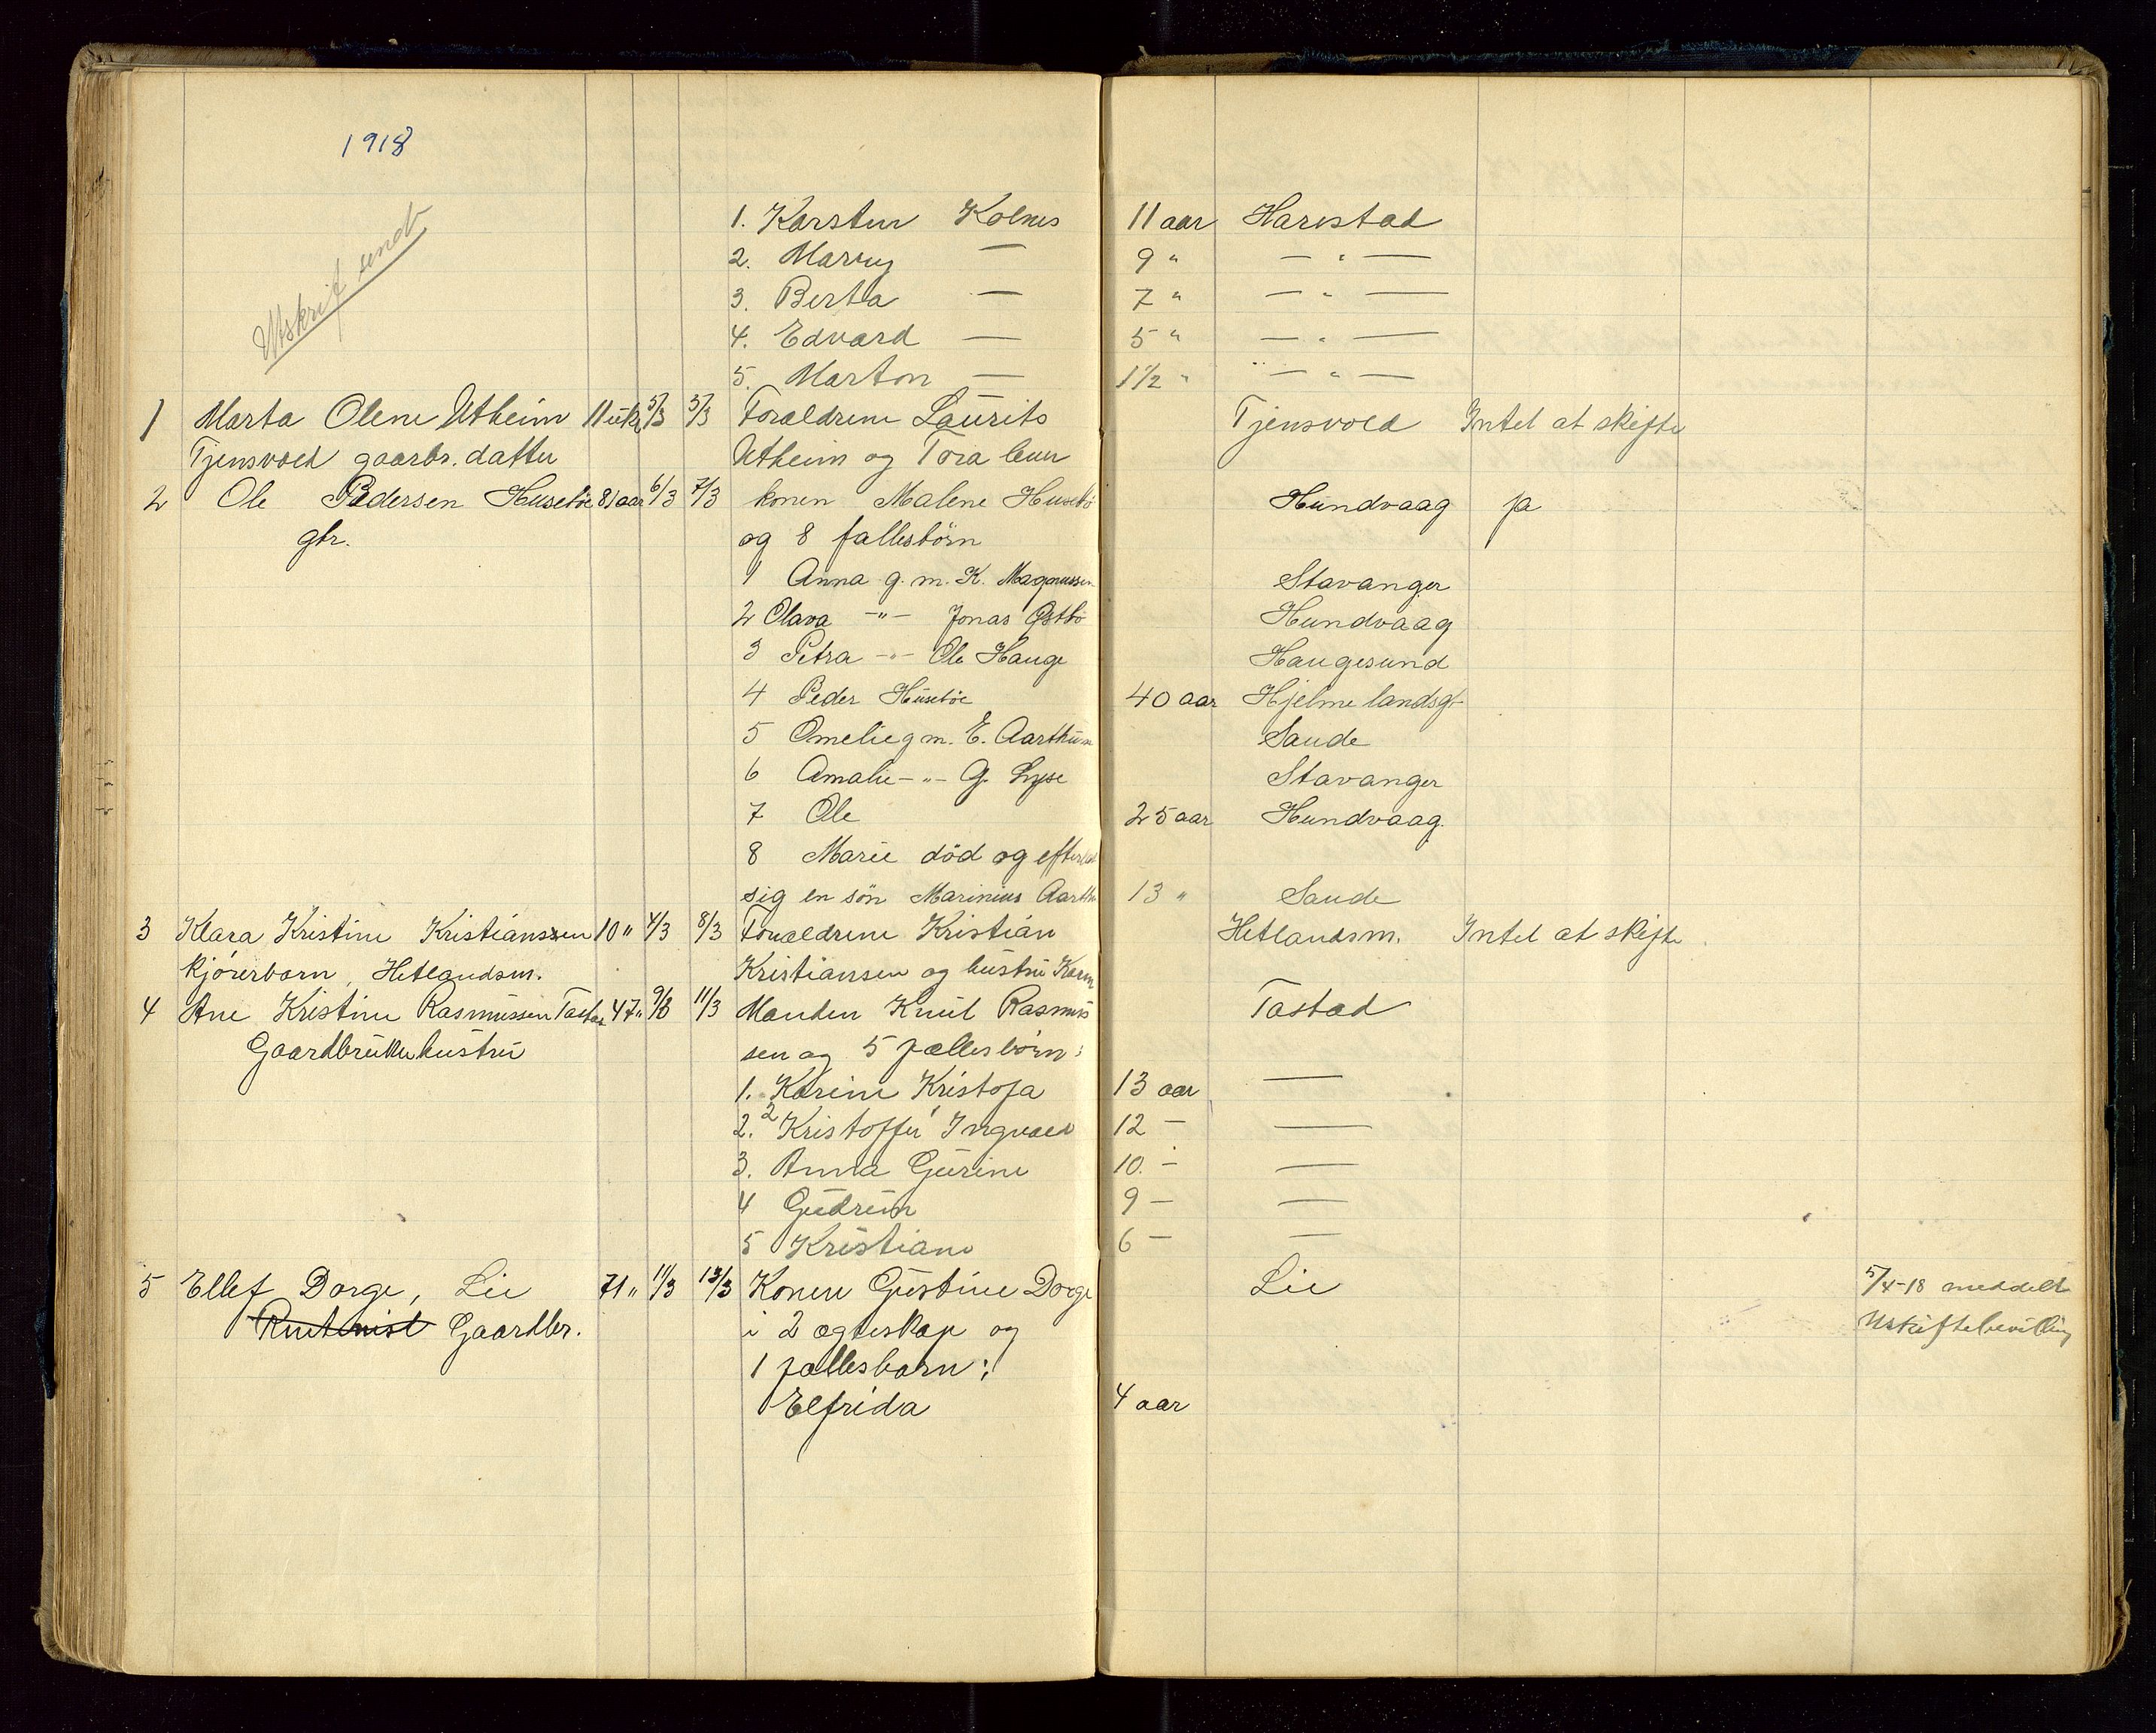 1918
Utskrift sendt
1. Karsten Kolnes 11 aar Harestad
2. Marny — 9 " — " —
3. Berta — 7 " — " —
4. Edvard — 5 " — " —
5. Marton — 1½ " — " —
1 Marta Olene Utheim 11 uk. 5/3 5/3 Forældrene Laurits Tjensvold Intet at skifte
Tjensvold gaarbr. datter Utheim og Tora
2 Ole Pedersen Husebøe 81 aar 6/3 7/3 konen Malene Husebø Hundvaag ja
gbr. og 8 fællesbörn
1 Anna g. m. K. Magnussen Stavanger
2 Olava -"- Jonas Østbö Hundvaag
3 Petra -"- Ole Hauge Haugesund
4 Peder Husebøe 40 aar Hjelmelandsg
5 Omelie g m. E. Aarthun Sande
6 Amalie -"- G. Lyse Stavanger
7 Ole 25 aar Hundvaag.
8 Marie död og efterlod
sig en sön Marinius Aarthu 13 " Sande
3 Klara Kristine Kristianssen 10 " 4/3 8/3 Forældrene Kristian Hetlandsm. Intet at skifte.
kjörerbarn, Hetlandsm. Kristiansen og hustru Karen
4 Ane Kristine Rasmussen Tastad 47 " 9/3 11/3 Manden Knut Rasmus Tastad
Gaardbruker hustru sen og 5 fællesbørn:
1. Karine Kristofa 13 aar —
2. Kristoffer Ingvald 12 — —
3. Anna Gurine 10. — —
4 Gudrun 9 — —
5 Kristiane 6 — —
5 Ellef Dorge, Lie 71 " 11/3 13/3 Konen Gustine Dorge Lie 5/4-18 meddelt
Rentenist Gaardbr. i 2 ægteskap og Uskiftebevilling
1 fællesbarn:
Elfrida 4 aar